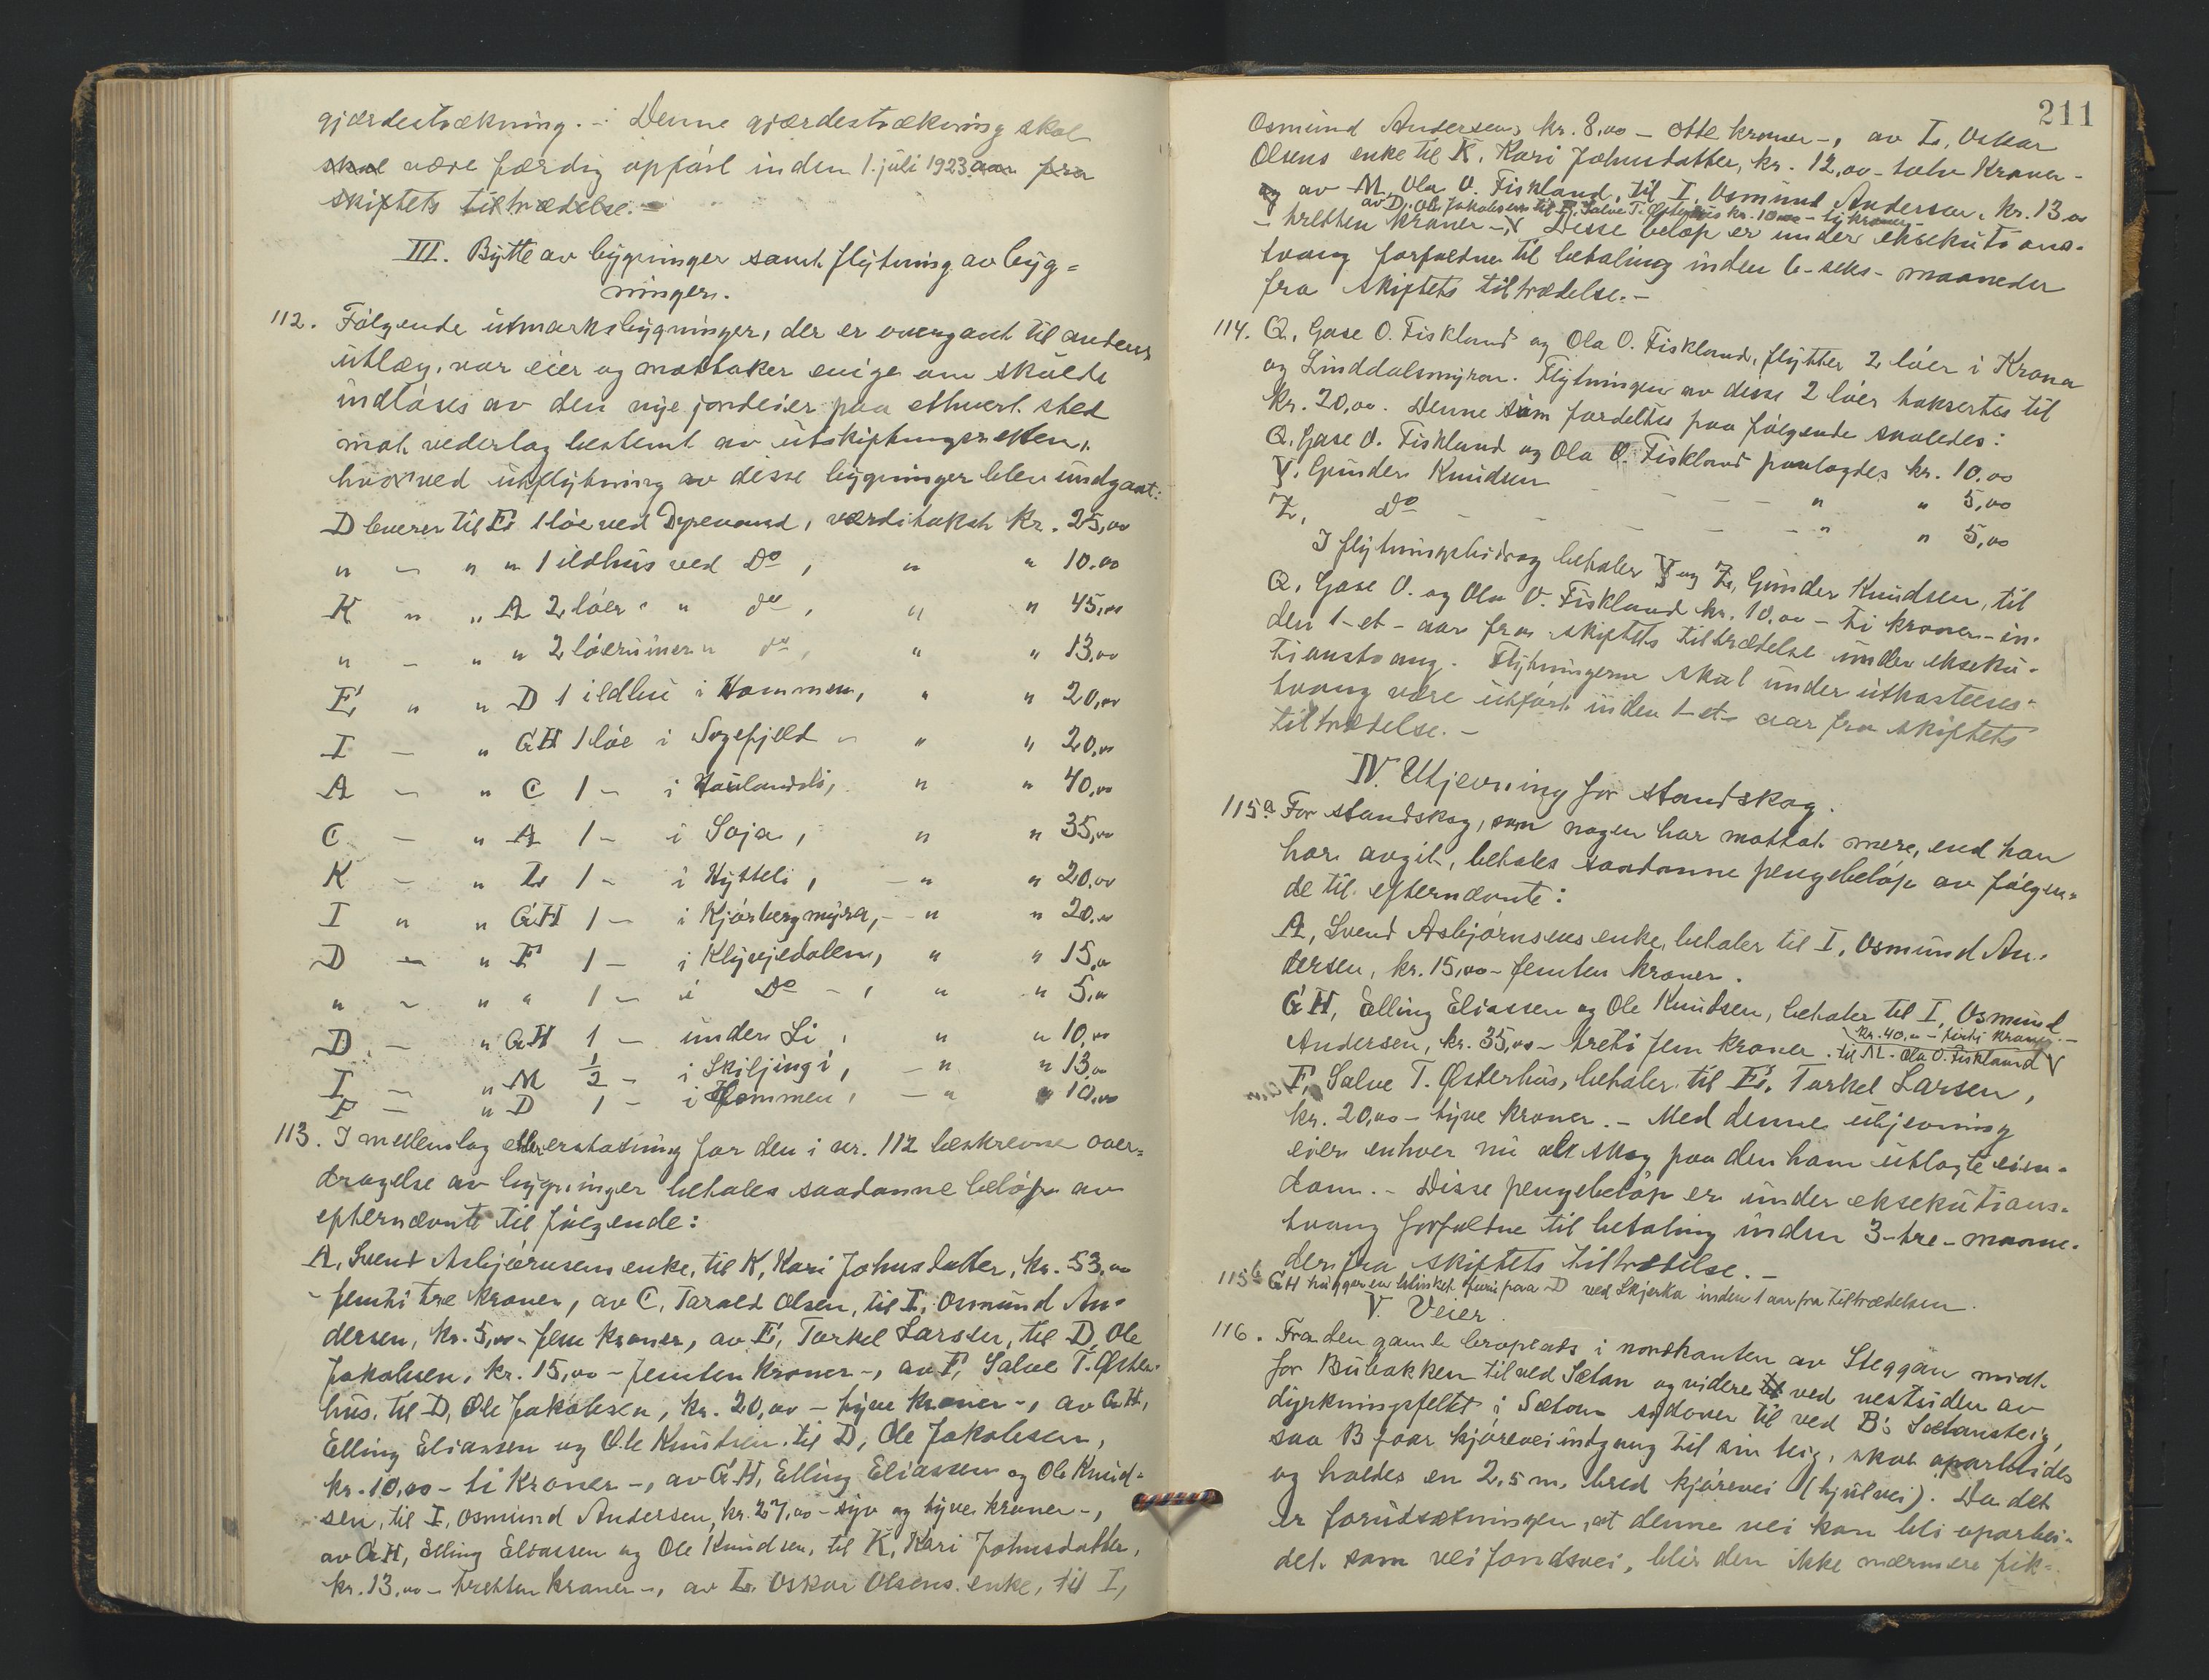 gjærdestrækning. - Denne gjærdestrækning skal
skal være færdig opført inden 1. juli 1923 aar fra
skiptets tiltrædelse. -
III. Bytte av bygninger samt flytning av byg=
ninger.
112. Følgende utmarksbygninger, der er overgaat til andens
utlæg, var eier og mottaker enige om skulde
indløses av den nye jordeier paa ethvert sted
mot vederlag bestemt av utskiftningsretten,
hvorved utflytning av disse bygninger blev undgaat:
D leverer til E, 1 løe ved Dyrevand, værditakst kr. 25,00
" - " " 1 ildhus ved Do, " " 10.00
K " " A 2 løer " do, " " 45,00
" - " " 2 løeruiner " do, " " 13,00
E " " D 1 ildhus i Hommen, " " 20,00
I - " GH 1 løe i Svgefjeld - " " 20,00
A - " C 1 - i Haulandsli, " " 40,00
C - " A 1 - i Soja, " " 35,00
K - " L 1 - i Hytteli, - " " 20,00
I " " GH 1 - i Kjørbergmyra, - " " 20.00
D - " F 1 - i Klyvjedalen, " " 15,00
" - " " 1 - i Do - , " " 5,00
D - " GH 1 - under Li, " " 10,00
I - " M ½ - i Skiljingi, - " " 13,00
F - " D 1 - i Hommen, - " " 10,00
113. I mellemlag eller erstatning for den i nr. 112 beskrevne over=
dragelse av bygninger betales saadanne beløp av
efternævnte til følgende:
A, Svend Asbjørnsens enke, til K, Kari Johnsdatter, kr. 53,00
- femti tre kroner, av C, Tarald Olsen, til I, Osmund An=
dersen, kr. 5,00 - fem kroner, av E, Tarkel Larsen, til D, Ole
Jakobsen, kr. 15,00 - femten kroner -, av F, Salve T. Øster=
hus, til D, Ole Jakobsen, kr. 20,00 - tyve kroner -, av GH,
Elling Eliassen og Ole Knudsen, til D, Ole Jakobsen,
kr. 10,00 - ti kroner -, av GH, Elling Eliassen og Ole Knud=
sen, til I, Osmund Andersen, kr. 27,00 - syv og tyve kroner -,
av GH, Elling Eliassen og Ole Knudsen, til K, Kari Johnsdatter,
kr. 13,00 - tretten kroner -, av L. Oskar Olsens enke, til I,
211
Osmund Andersen, kr. 8,00 - otte kroner -, av L, Oskar
Olsens enke til K, Kari Johnsdatter, kr. 12,00 - tolv kroner -
og av M, Ola O. Fiskland, til I, Osmund Andersen, kr. 13,00
av D, Ole Jakobsen til F, Salve T. Østerhus kr. 10,00 - ti kroner -
- tretten kroner -, V Disse beløp er under eksekutions-
tvang forfaldne til betaling inden 6 - seks - maaneder
fra skiptets tiltrædelse. -
114. Q, Gase O. Fiskland og Ola O. Fiskland, flytter 2 løer i Krona
og Linddalsmyran. Flytningen av disse 2 løer taksertes til
kr. 20,00. Denne sum fordeltes paa følgende saaledes:
Q, Gase O. Fiskland og Ola O. Fiskland paalagdes kr. 10,00
Y, Gunder Knudsen - - - - " " 5,00
Z, do - - - - - " " 5,00
I flytningsbidrag betaler Y og Z, Gunder Knudsen, til
Q, Gase O. og Ola O. Fiskland kr. 10,00 - ti kroner - in-
den 1 - et - aar fra skiptets tiltrædelse under ekseku-
tionstvang. Flytningerne skal under utkastelses-
tvang være utført inden 1 - et - aar fra skiptets
tiltrædelse. -
IV. Utjevning for standskog.
115a. For standskog, som nogen har mottat mere, end han
har avgit, betales saadanne pengebeløp av følgen=
de til efternævnte:
A, Svend Asbjørnsens enke, betaler til I, Osmund An-
dersen, kr. 15,00 - femten kroner.
GH, Elling Eliassen og Ole Knudsen, betaler til I, Osmund
kr. 40,00 - førti kroner -
Andersen, kr. 35,00 - treti fem kroner. til M. Ola O. Fiskland V
F, Salve T. Østerhus, betaler til E, Tarkel Larsen,
kr. 20,00 - tyve kroner. - Med denne utjevning
eier enhver nu alt skog paa den ham utlagte eien-
dom. - Disse pengebeløp er under eksekutions-
tvang forfaldne til betaling inden 3 - tre - maane-
der fra skiptets tiltrædelse. -
115b GH hugger en blinket furu paa D ved Skjerka inden 1 aar fra tiltrædelsen.
V. Veier.
116. Fra den gamle broplads i nordkanten av Steggan midt
for Bubakken til ved Sætan og videre til ved vestsiden av
dyrkningsfeltet i Sætan sydover til ved B's Sætansteig,
saa B faar kjøreveiindgang til sin teig, skal oparbeides
og holdes en 2,5 m. bred kjørevei (hjulvei). Da det
er forutsætningen, at denne vei kan bli oparbei-
det som veifondsvei, blir den ikke nærmere fik-